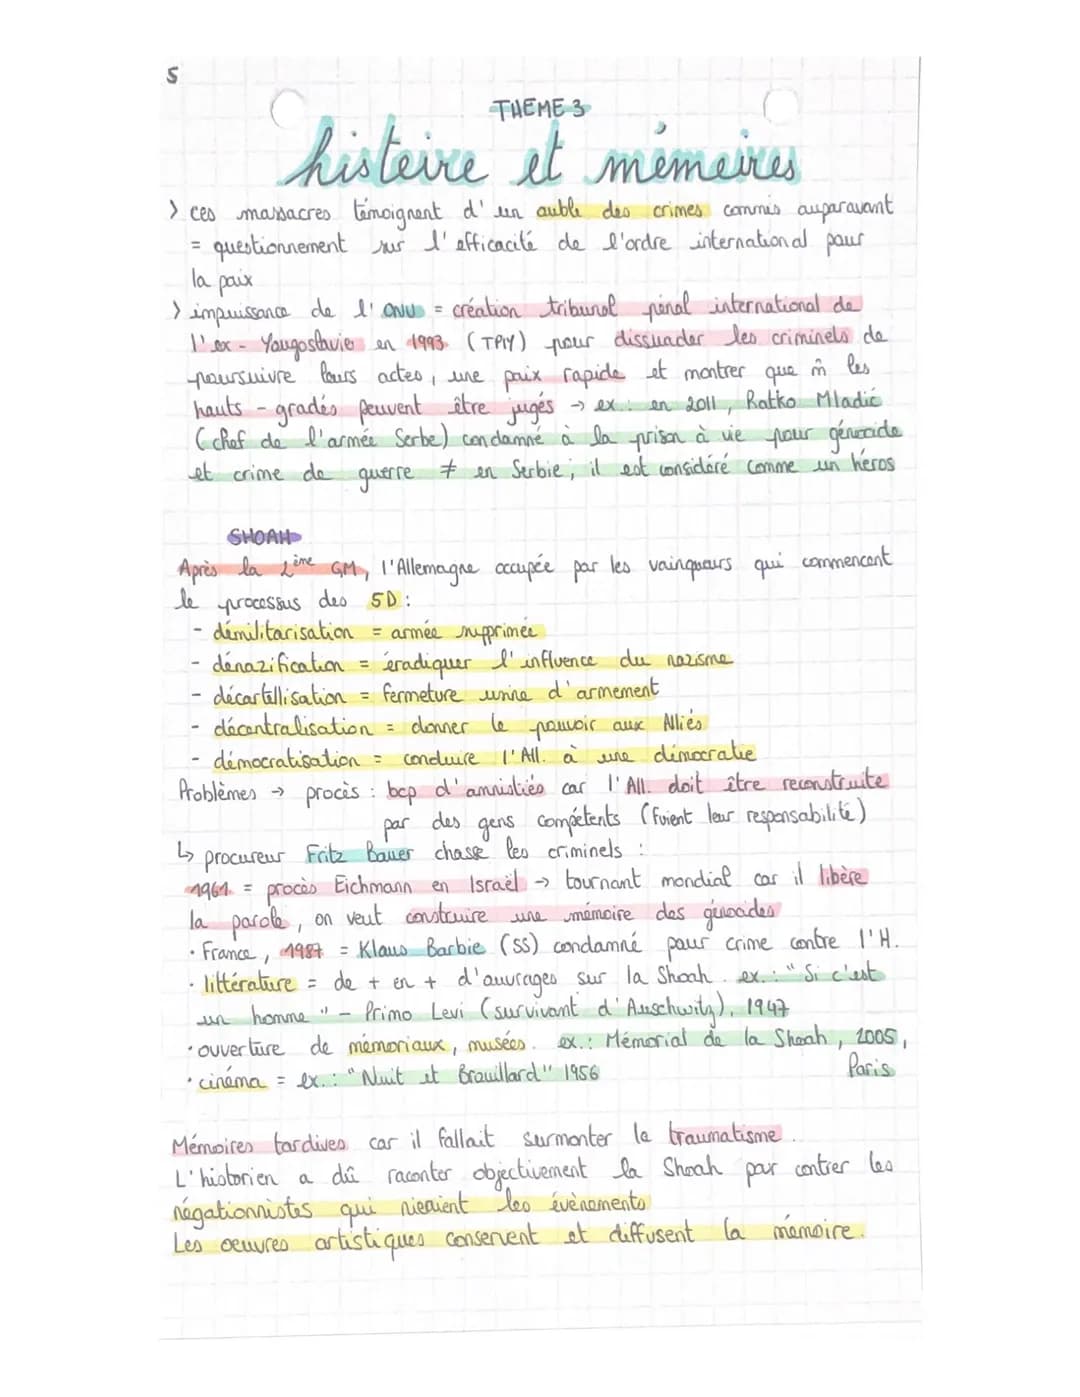 5
THEME 3
histoire et mémoires
> ces massacres témoignent d'un oubli des crimes commis auparavant
= questionnement sur l'efficacité de l'ordre international pour
la paix
> impuissance de l'ONU = création tribunal pénal international de
l'ex-Yougoslavie en 1993 (TPIY) pour dissuader les criminels de
poursuivre leurs actes, une paix rapide et montrer que m̂ les
hauts-gradés peuvent être jugés → ex: en 2011, Ratko Mladić
(chef de l'armée Serbe) condamné à la prison à vie pour génocide
et crime de guerre ≠ en Serbie, il est considéré comme un héros
SHOAH
Après la 2ème GM, l'Allemagne occupée par les vainqueurs qui commencent
le processus des 5D :
- démilitarisation = armée supprimée
- dénazification = éradiquer l'influence du nazisme
- décartellisation = fermeture usine d'armement
- décentralisation = donner le pouvoir aux Alliés
- démocratisation = conduire l'All. à une démocratie
Problèmes → procès : bcp d'amnistiés car l'All. doit être reconstruite
par des gens compétents (fuient leur responsabilité)
↳ procureur Fritz Bauer chasse les criminels :
1961 = procès Eichmann en Israël → tournant mondial car il libère
la parole, on veut construire une mémoire des génocides
• France, 1987 = Klaus Barbie (SS) condamné pour crime contre l'H.
• littérature = de + en + d'ouvrages sur la Shoah. ex.: "Si c'est
un homme" - Primo Levi (survivant d'Auschwitz), 1947
• ouverture de mémoriaux, musées. ex.: Mémorial de la Shoah, 2005,
Paris
• cinéma = ex.: "Nuit et Brouillard" 1956
Mémoires tardives car il fallait surmonter le traumatisme.
L'historien a dû raconter objectivement la Shoah par contrer les
négationnistes qui nieaient les évènements
Les oeuvres artistiques conservent et diffusent la mémoire.